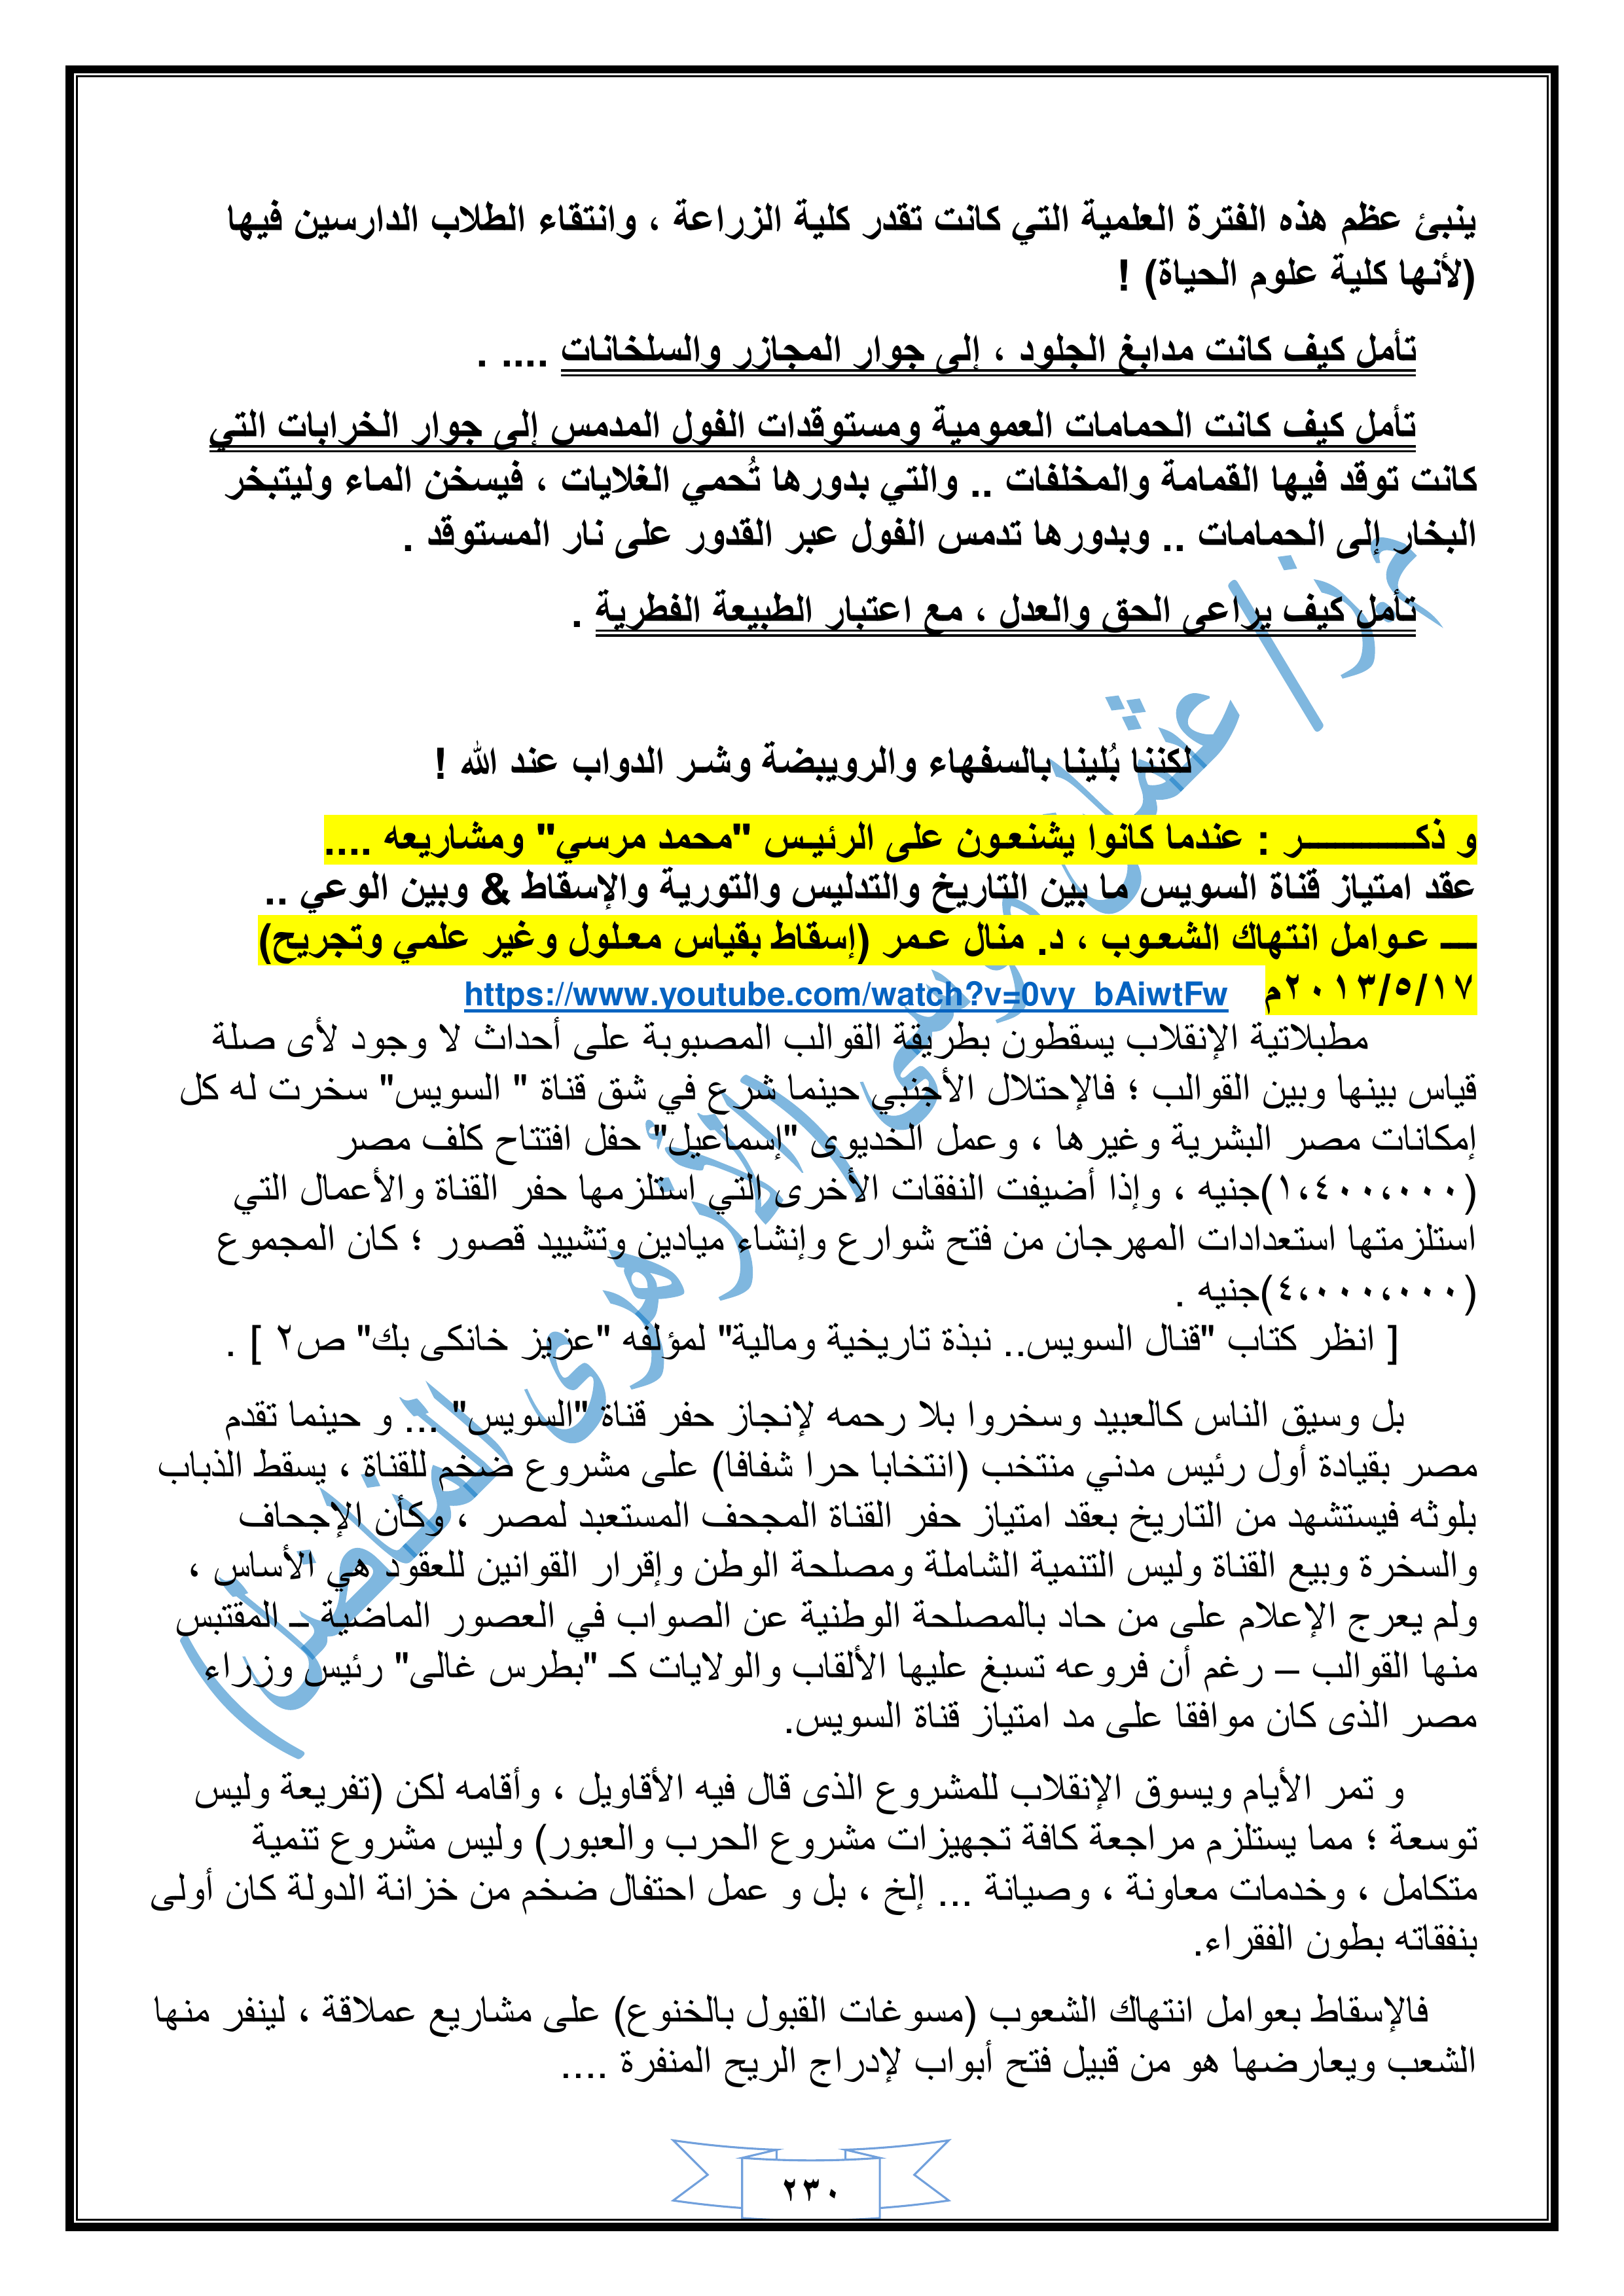 ينبئ عظم هذه الفترة العلمية التي كانت تقدر كلية الزراعة ، وانتقاء الطلاب الدارسين فيها
(لأنها كلية علوم الحياة) !
تأمل كيف كانت مدابغ الجلود ، إلى جوار المجازر والسلخانات .... .
تأمل كيف كانت الحمامات العمومية ومستوقدات الفول المدمس إلى جوار الخرابات التي
كانت توقد فيها القمامة والمخلفات .. والتي بدورها تُحمي الغلايات ، فيسخن الماء وليتبخر
البخار إلى الحمامات .. وبدورها تدمس الفول عبر القدور على نار المستوقد .
تأمل كيف يراعى الحق والعدل ، مع اعتبار الطبيعة الفطرية .
لكننا بُلينا بالسفهاء والرويبضة وشر الدواب عند الله !
و ذكـــــــــــر : عندما كانوا يشنعون على الرئيس "محمد مرسي" ومشاريعه ....
عقد امتياز قناة السويس ما بين التاريخ والتدليس والتورية والإسقاط & وبين الوعي ..
ـــ عوامل انتهاك الشعوب ، د. منال عمر (إسقاط بقياس معلول وغير علمي وتجريح)
١٧/٥/٢٠١٣م https://www.youtube.com/watch?v=0vy_bAiwtFw
مطبلاتية الإنقلاب يسقطون بطريقة القوالب المصبوبة على أحداث لا وجود لأى صلة
قياس بينها وبين القوالب ؛ فالإحتلال الأجنبي حينما شرع في شق قناة " السويس" سخرت له كل
إمكانات مصر البشرية وغيرها ، وعمل الخديوى "إسماعيل" حفل افتتاح كلف مصر
(١،٤٠٠،٠٠٠)جنيه ، وإذا أضيفت النفقات الأخرى التي استلزمها حفر القناة والأعمال التي
استلزمتها استعدادات المهرجان من فتح شوارع وإنشاء ميادين وتشييد قصور ؛ كان المجموع
(٤،٠٠٠،٠٠٠)جنيه .
[ انظر كتاب "قنال السويس.. نبذة تاريخية ومالية" لمؤلفه "عزيز خانكى بك" ص٢ ] .
بل وسيق الناس كالعبيد وسخروا بلا رحمه لإنجاز حفر قناة "السويس" ... و حينما تقدم
مصر بقيادة أول رئيس مدني منتخب (انتخابا حرا شفافا) على مشروع ضخم للقناة ، يسقط الذباب
بلوثه فيستشهد من التاريخ بعقد امتياز حفر القناة المجحف المستعبد لمصر ، وكأن الإجحاف
والسخرة وبيع القناة وليس التنمية الشاملة ومصلحة الوطن وإقرار القوانين للعقود هي الأساس ،
ولم يعرج الإعلام على من حاد بالمصلحة الوطنية عن الصواب في العصور الماضية ــ المقتبس
منها القوالب – رغم أن فروعه تسبغ عليها الألقاب والولايات كـ "بطرس غالى" رئيس وزراء
مصر الذى كان موافقا على مد امتياز قناة السويس.
و تمر الأيام ويسوق الإنقلاب للمشروع الذى قال فيه الأقاويل ، وأقامه لكن (تفريعة وليس
توسعة ؛ مما يستلزم مراجعة كافة تجهيزات مشروع الحرب والعبور) وليس مشروع تنمية
متكامل ، وخدمات معاونة ، وصيانة ... إلخ ، بل و عمل احتفال ضخم من خزانة الدولة كان أولى
بنفقاته بطون الفقراء.
فالإسقاط بعوامل انتهاك الشعوب (مسوغات القبول بالخنوع) على مشاريع عملاقة ، لينفر منها
الشعب ويعارضها هو من قبيل فتح أبواب لإدراج الريح المنفرة ....
٢٣٠